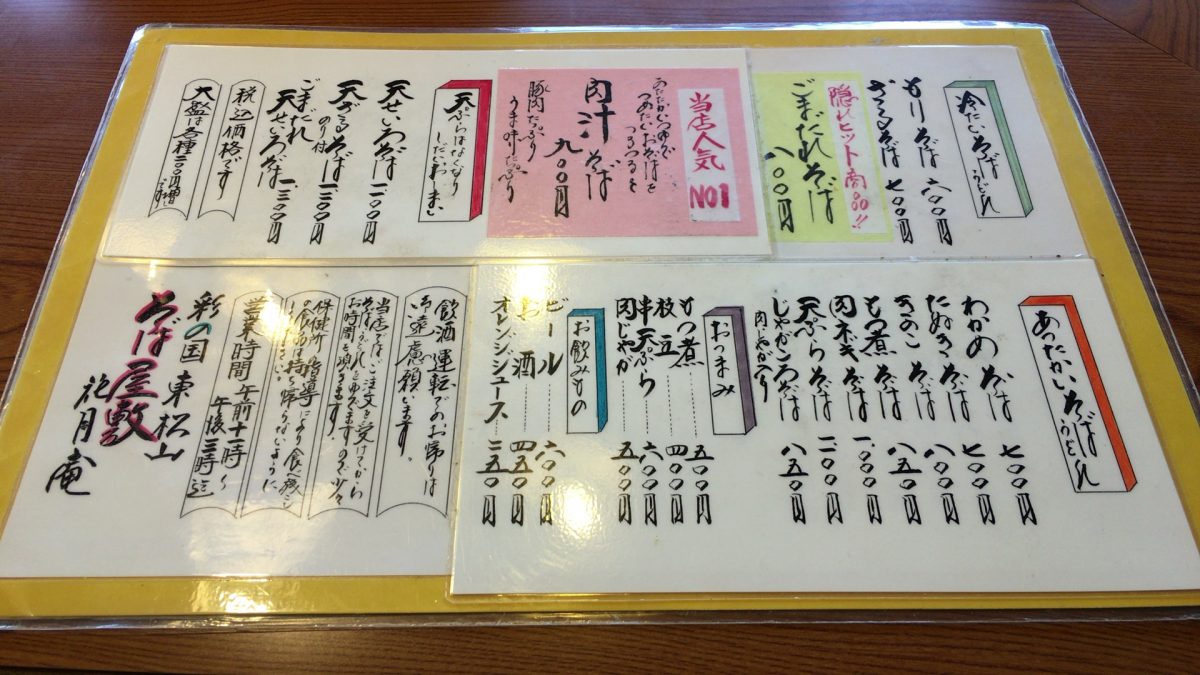 冷たいそば
うどん
もりそば 六〇〇円
ざるそば 七〇〇円
隠れヒット商品!!
ごまだれそば
八〇〇円
当店人気 NO1
あたたかいつゆで
つめたいおそばを
つるつると
肉汁そば
九〇〇円
豚肉たっぷり
うま味たっぷり
天ぷらはなくなり
しだいおしまい
天せいろそば 一.二〇〇円
天ざるそば 一.三〇〇円
のり付
ごまだれ
天せいろそば 一.三〇〇円
税込価格です
大盛は各種二〇〇円増
あたたかいそば
うどん
わかめそば 七〇〇円
たぬきそば 七〇〇円
きのこそば 八〇〇円
もつ煮そば 八五〇円
肉ネギそば 一.〇〇〇円
天ぷらそば 一.二〇〇円
じゃがころそば 八五〇円
肉じゃが入り
おつまみ
もつ煮 五〇〇円
枝豆 四〇〇円
串天ぷら 六〇〇円
肉じゃが 五〇〇円
お飲みもの
ビール 六〇〇円
お酒 四五〇円
オレンジジュース 二五〇円
飲酒運転でのお帰りは
ご遠慮願います。
当店では、ご注文を受けてから
お時間を頂きます。
保健所の指導により食べ残し
の食品は持ち帰らないように
営業時間 午前十一時〜
午後三時迄
彩の国 東松山
そば屋敷
花月庵